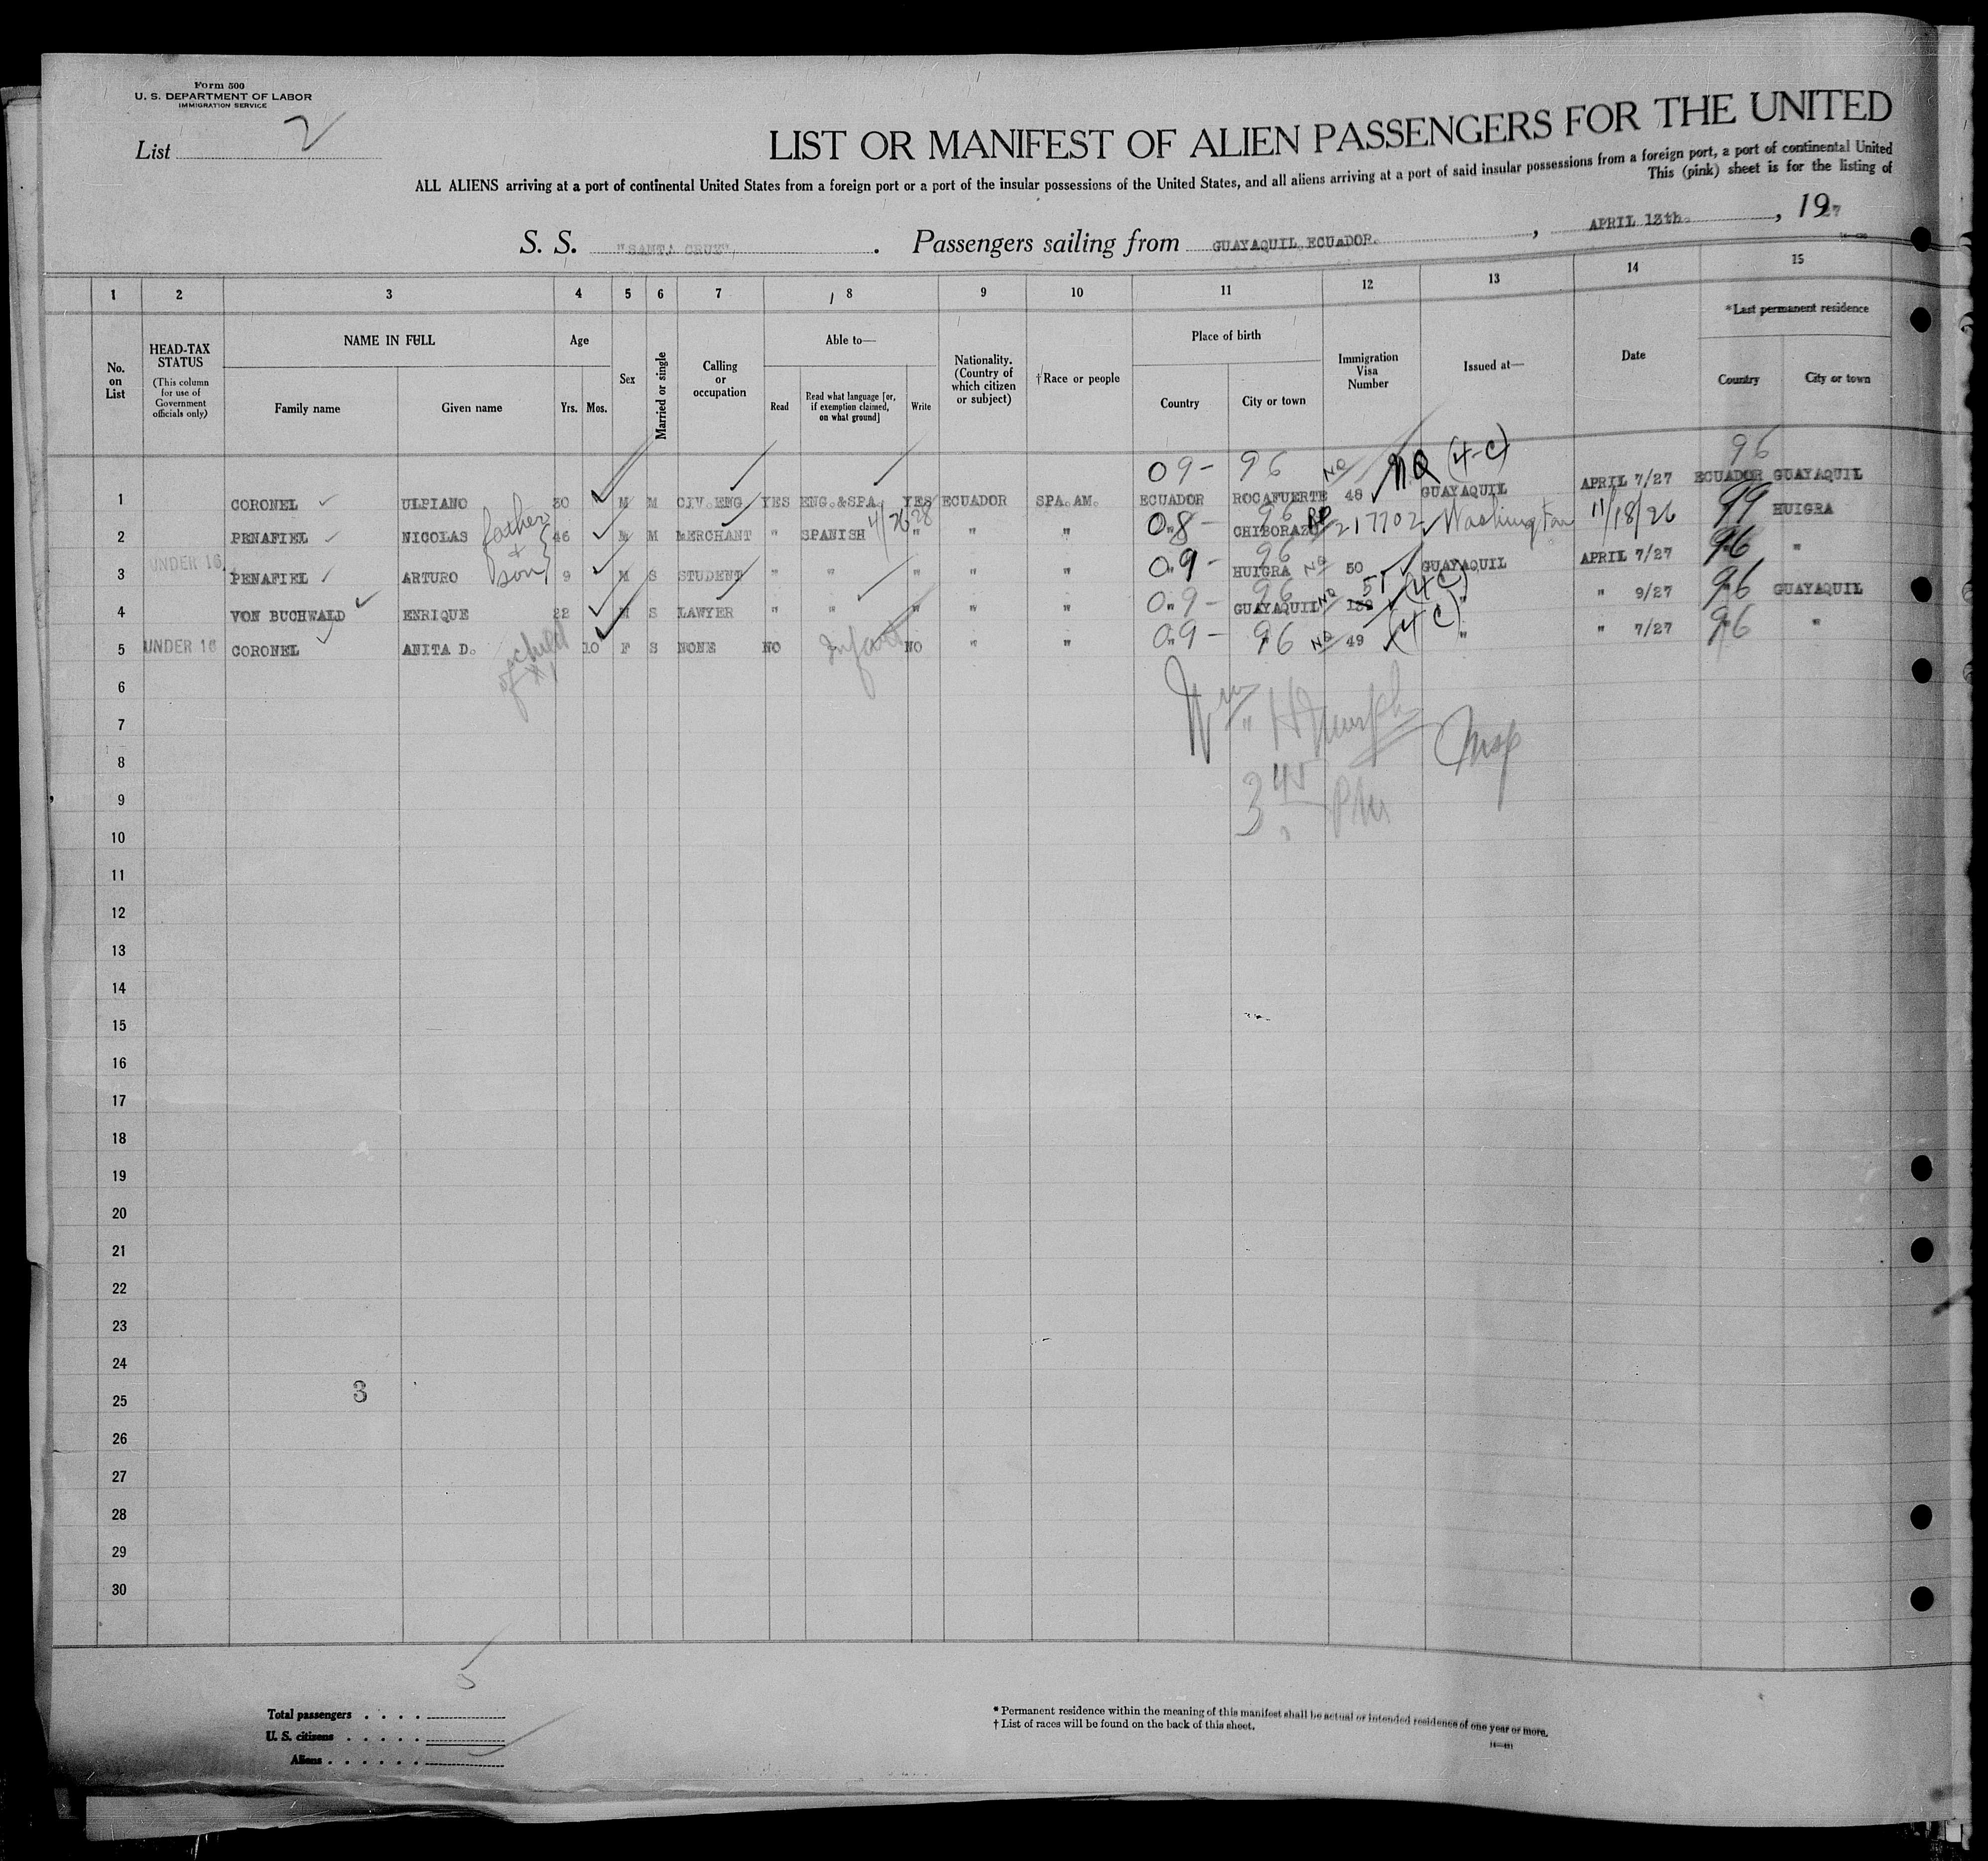 Form 500
U. S. DEPARTMENT OF LABOR
IMMIGRATION SERVICE
List 2
LIST OR MANIFEST OF ALIEN PASSENGERS FOR THE UNITED
ALL ALIENS arriving at a port of continental United States from a foreign port or a port of the insular possessions of the United States, and all aliens arriving at a port of said insular possessions from a foreign port, a port of continental United
This (pink) sheet is for the listing of
S. S. "SANTA CRUZ", . Passengers sailing from GUAYAQUIL.ECUADOR. , APRIL 13th. , 1927
1 2 3 4 5 6 7 8 9 10 11 12 13 14 15
No. on List
HEAD-TAX STATUS
(This column for use of Government officials only)
NAME IN FULL
Family name
Given name
Age
Yrs. Mos.
Sex
Married or single
Calling or occupation
Able to—
Read
Read what language [or, if exemption claimed, on what ground]
Write
Nationality. (Country of which citizen or subject)
†Race or people
Place of birth
Country
City or town
Immigration Visa Number
Issued at—
Date
*Last permanent residence
Country
City or town
09- 96 NQ NQ (4-C) 96
1 CORONEL ULPIANO 30 M M CIV.ENG YES ENG.&SPA. YES ECUADOR SPA.AM. ECUADOR ROCAFUERTE 48 GUAYAQUIL APRIL 7/27 ECUADOR GUAYAQUIL
father + son
4/26/28
08- 96 RP 99
2 PENAFIEL NICOLAS 46 M M MERCHANT " SPANISH " " " " CHIBORAZO 217702 Washington 11/18/26 HUIGRA
09- 96 NQ 96
3 UNDER 16 PENAFIEL ARTURO 9 M S STUDENT " " " " " " HUIGRA 50 GUAYAQUIL APRIL 7/27 " "
09- 96 NQ 51 (4C) 96
4 VON BUCHWALD ENRIQUE 22 M S LAWYER " " " " " " GUAYAQUIL " " 9/27 " GUAYAQUIL
09- 96 NQ (4C) 96
5 UNDER 16 CORONEL ANITA D. 10 F S NONE NO Infant NO " " " " 49 " " 7/27 "
child of #1
6
Wm H Murphy Insp
7
8
3 45 PM
9
10
11
12
13
14
15
16
17
18
19
20
21
22
23
24
3
25
26
27
28
29
30
5
Total passengers . . . .
U. S. citizens . . . . .
Aliens . . . . . .
* Permanent residence within the meaning of this manifest shall be actual or intended residence of one year or more.
† List of races will be found on the back of this sheet.